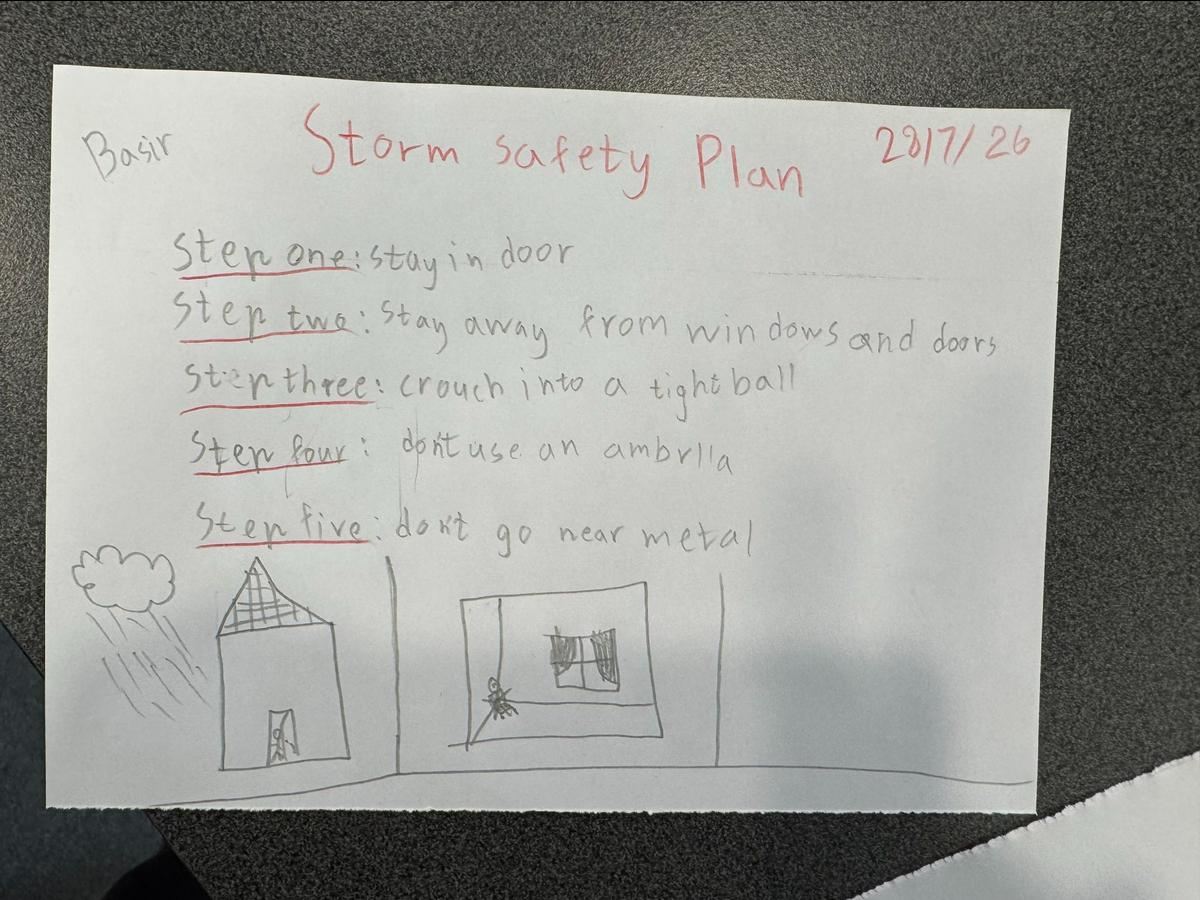 Basir
Storm safety Plan
28/7/26
Step one: stay in door
Step two: stay away from windows and doors
Step three: crouch into a tight ball
Step four: don't use an ambrlla
Step five: don't go near metal